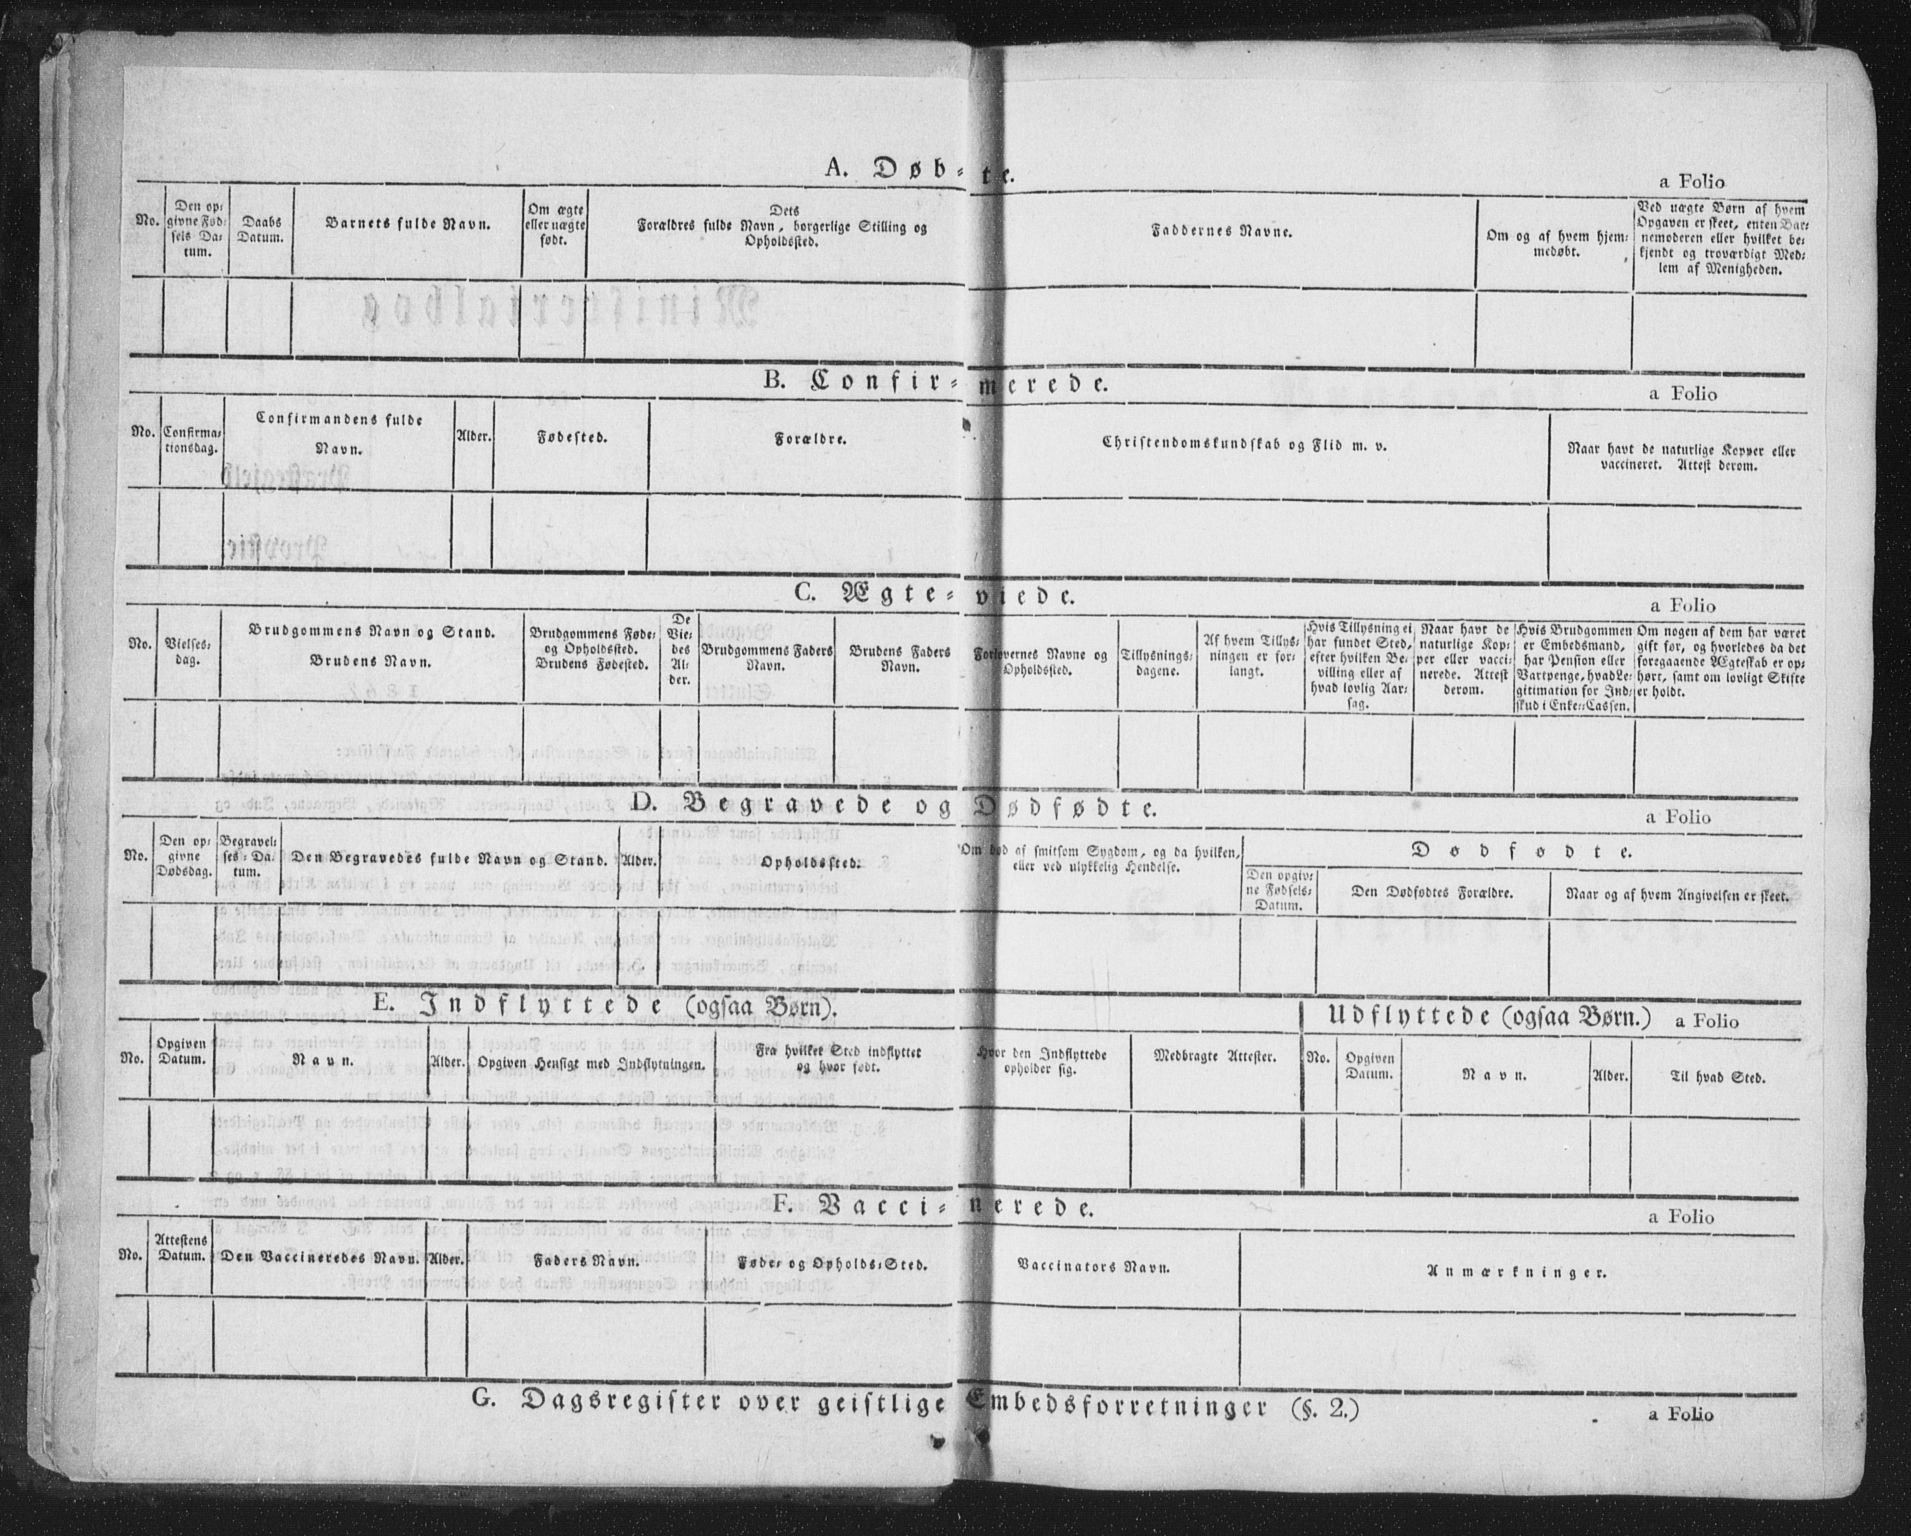 A. Døb-te.
a Folio
No.
Den op-
givne Fød-
sels Da-
tum.
Daabs
Datum.
Barnets fulde Navn.
Om ægte
eller uægte
født.
Dets
Forældres fulde Navn, borgerlige Stilling og
Opholdssted.
Faddernes Navne.
Om og af hvem hjem-
medøbt.
Ved uægte Børn af hvem
Opgaven er skeet, enten Bar-
nemoderen eller hvilket be-
kjendt og troværdigt Med-
lem af Menigheden.
B. Confir-merede.
a Folio
No.
Confirma-
tionsdag.
Confirmandens fulde
Navn.
Alder.
Fødested.
Forældre.
Christendomskundskab og Flid m. v.
Naar havt de naturlige Kopper eller
vaccineret. Attest derom.
C. Ægte-viede.
a Folio
No.
Vielses-
dag.
Brudgommens Navn og Stand.
Brudens Navn.
Brudgommens Føde-
og Opholdssted.
Brudens Fødested.
De
Vie-
des
Al-
der.
Brudgommens Faders
Navn.
Brudens Faders
Navn.
Forlovernes Navne og
Opholdssted.
Tillysnings-
dagene.
Af hvem Tillys-
ningen er for-
langt.
Hvis Tillysning ei
har fundet Sted,
efter hvilken Be-
villing eller af
hvad lovlig Aar-
sag.
Naar havt de
naturlige Kop-
per eller vacci-
nerede. Attest
derom.
Hvis Brudgommen
er Embedsmand,
har Pension eller
Vartpenge, hvad Le-
gitimation for Ind-
skud i Enke-Cassen.
Om nogen af dem har været
gift før, og hvorledes da det
foregaaende Ægteskab er op-
hørt, samt om lovligt Skifte
er holdt.
D. Begravede og Dødfødte.
a Folio
No.
Den op-
givne
Dødsdag.
Begravel-
ses-Da-
tum.
Den Begravedes fulde Navn og Stand.
Alder.
Opholdssted.
Om død af smitsom Sygdom, og da hvilken,
eller ved ulykkelig Hendelse.
Dødfødte.
Den opgiv-
ne Fødsels-
Datum.
Den Dødfødtes Forældre.
Naar og af hvem Angivelsen er skeet.
E. Indflyttede (ogsaa Børn).
Udflyttede (ogsaa Børn.)
a Folio
No.
Opgiven
Datum.
Navn.
Alder.
Opgiven Hensigt med Indflytningen.
Fra hvilket Sted indflyttet
og hvor født.
Hvor den Indflyttede
opholder sig.
Medbragte Attester.
No.
Opgiven
Datum.
Navn.
Alder.
Til hvad Sted.
F. Vacci-nerede.
a Folio
No.
Attestens
Datum.
Den Vaccineredes Navn.
Alder.
Faders Navn.
Føde- og Opholds-Sted.
Vaccinators Navn.
Anmærkninger.
G. Dagsregister over geistlige Embedsforretninger (§. 2.)
a Folio